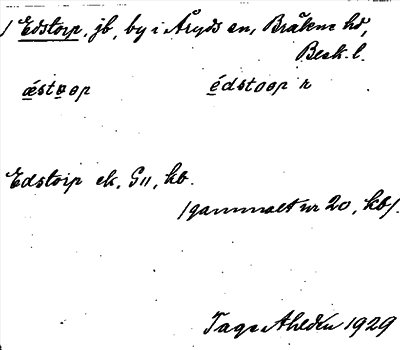 1 Edstorp, jb, by i Åryds sn, Bräkne hd,
Blek. l.
ǽstọrp édstorp r
Edstorp ek, G11, kb.
/gammalt nr 20, kb/.
Tage Ahldén 1929